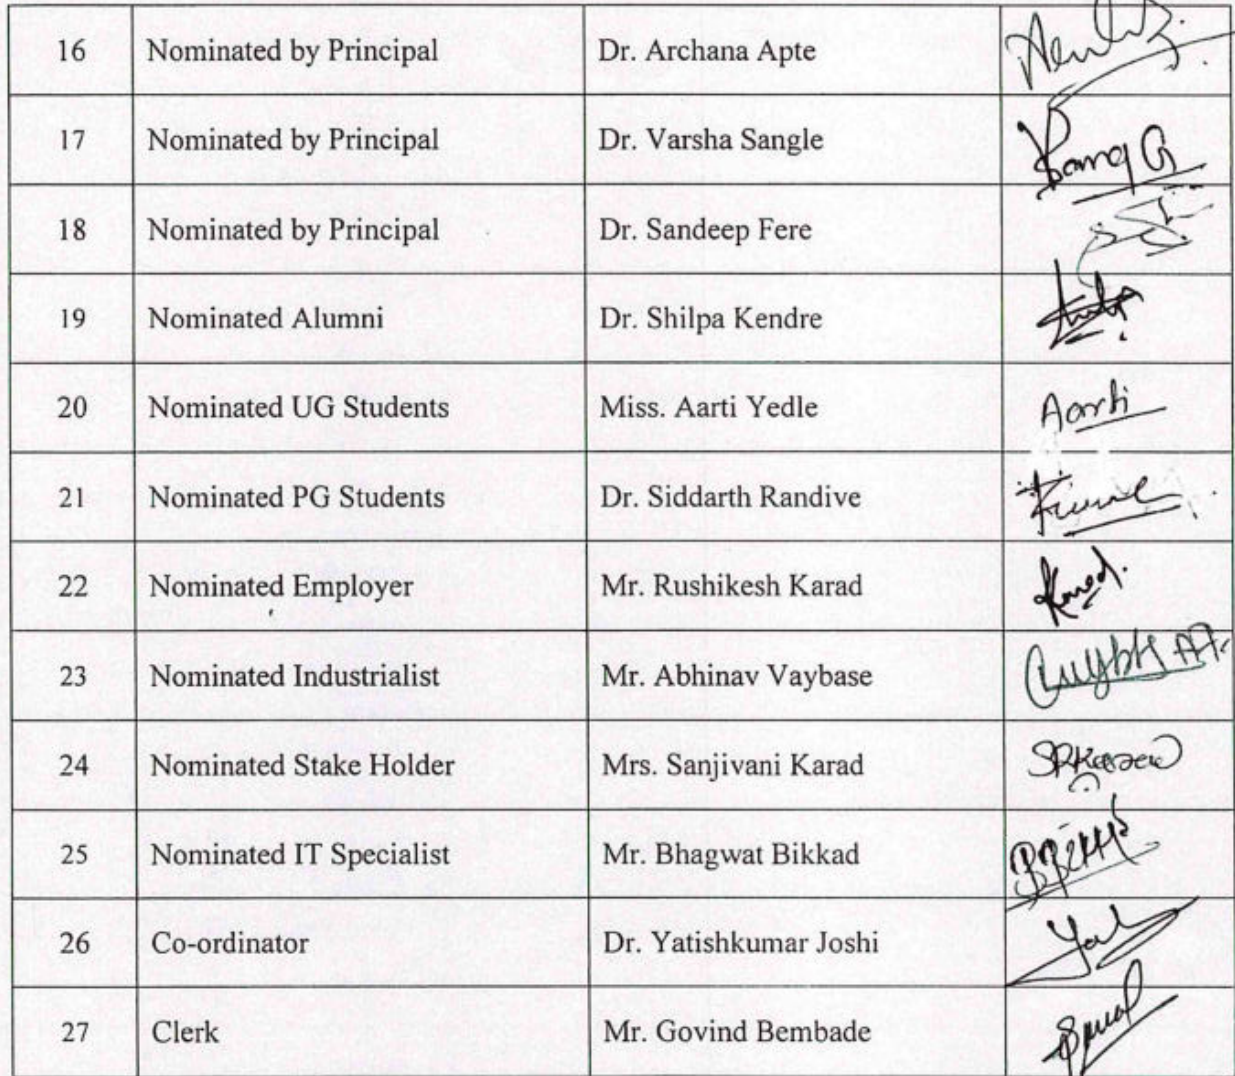 16 Nominated by Principal Dr. Archana Apte
17 Nominated by Principal Dr. Varsha Sangle
18 Nominated by Principal Dr. Sandeep Fere
19 Nominated Alumni Dr. Shilpa Kendre
20 Nominated UG Students Miss. Aarti Yedle Aarti
21 Nominated PG Students Dr. Siddarth Randive
22 Nominated Employer Mr. Rushikesh Karad
23 Nominated Industrialist Mr. Abhinav Vaybase
24 Nominated Stake Holder Mrs. Sanjivani Karad
25 Nominated IT Specialist Mr. Bhagwat Bikkad
26 Co-ordinator Dr. Yatishkumar Joshi
27 Clerk Mr. Govind Bembade